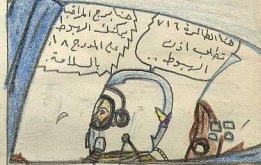 هنا الطائرة ٧١٦
تطلب اذن
الهبوط ..
هنا برج المراقبة
يمكنك الهبوط
على المدرج ١٨
بالسلامة.